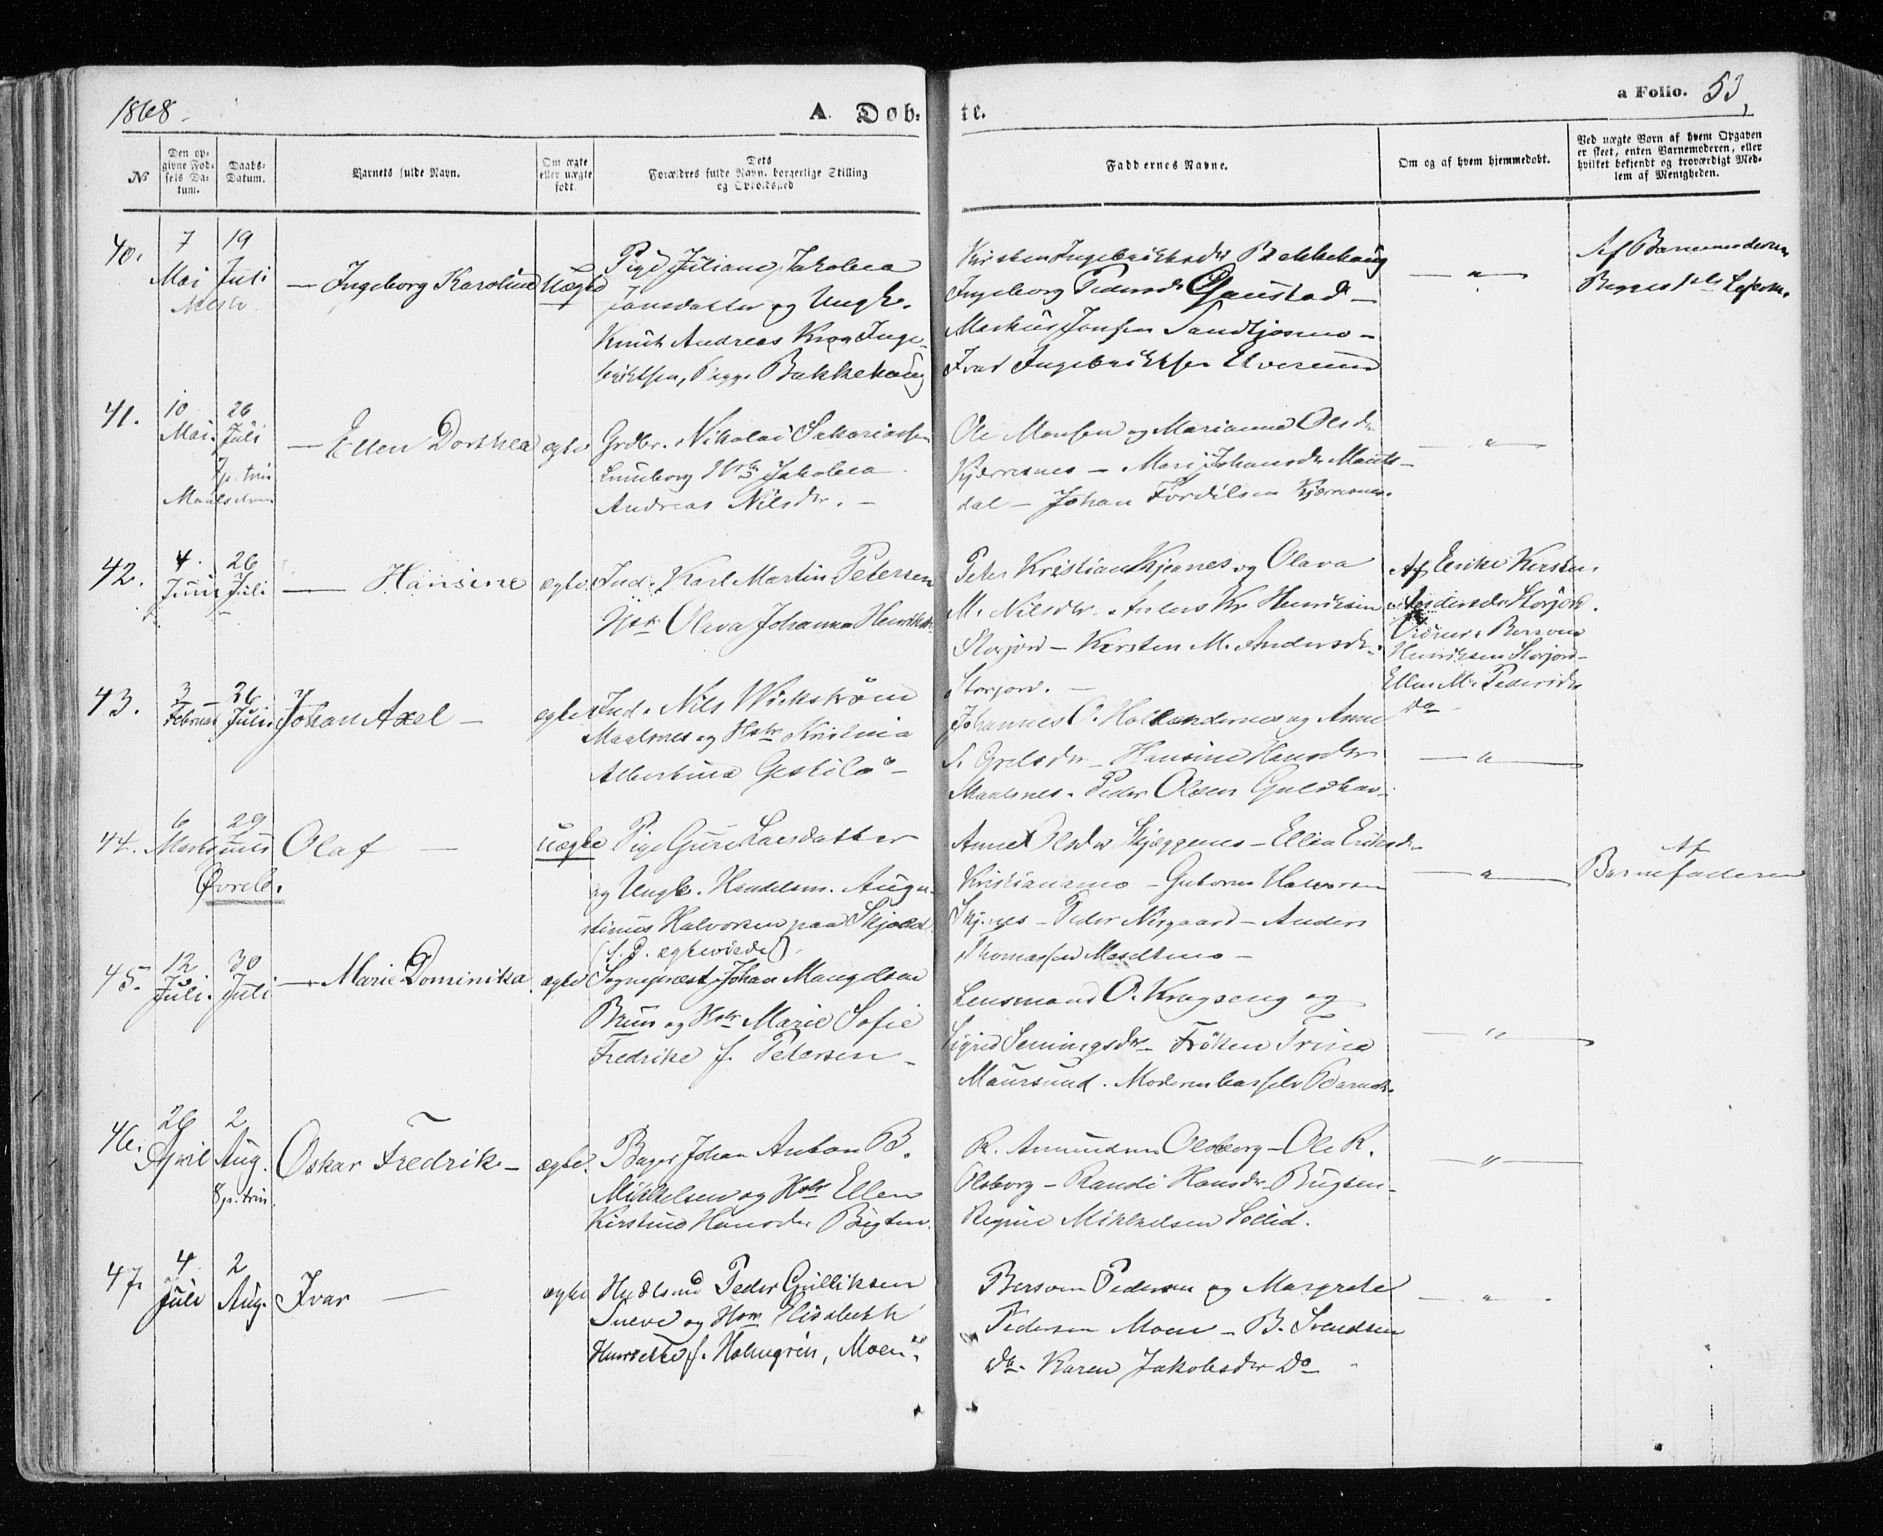 1868.
A Døb-
te.
a Folio. 53,
No
Den op-
givne Fød-
sels Da-
tum.
Daabs-
Datum.
Barnets fulde Navn.
Om ægte
eller uægte
født.
Dets
Forældres fulde Navn, borgerlige Stilling
og Opholdssted
Faddernes Navne.
Om og af hvem hjemmedøbt.
Ved uægte Børn af hvem Opgaven
er skeet, enten Barnemoderen, eller
hvilket bekjendt og troværdigt Med-
lem af Menigheden.
40.
7
Mai
19
Juli
Ingeborg Karoline
Uægte
Pige Juliane Jakobea
Jonsdatter og Ungk.
Knut Andreas Krog Inge-
briktsen, Begge Bakkehaug
Kirsten Ingebriktsdr Bakkehaug
Ingeborg Pedersdr Gaustad
Markus Jonsen Sandtjosmo
Ivar Ingebriktsen Elverum
Af Barnemoderen
41.
10
Mai
26
Juli
7 p. trin
Maalselven
Ellen Dorthea
ægte
Grdbr. Nikolai Sakariassen
Luneborg Hstr Jakobea
Andreas Nilsdr.
Ole Monsen og Marianna Olsdr
Kjærresnes - Mari Johansdr Mauk-
dal - Johan Fordelsen Kjærresnes.
42.
4.
Juni
26
Juli
Hansine
ægte
Ind. Karl Martin Petersen
Hstr Olava Johanna Henriksdr
Peter Kristian Kjernes og Olava
M. Nilsdr. Anders Kr Henriksen
Storjord - Kirsten M. Andersdr.
Storjord.
Af Enke Kirsten
Andersdr Storjord.
Vidner: Bersven
Henriksen Storjord
Ellen M. Pedersdr
Do
43.
3
Februar
26
Juli
Johan Axel
ægte
Ind. Nils Wikstrøm
Maalsnes og Hstr Kristina
Albertina
Johannes O. Hollendernes og Anne
Hansine Hansdr
Maalsnes. Peder Olsen Guldhav
44.
6
Marts
29
Juni
Øvreb.
Olaf
uægte
Pige Guri Larsdatter
og Ungk. Handelsm. Augu-
stinus Halvorsen paa Skjold
Anne Olsdr Skjæggenes - Ellen Eriksdr
Kristianmo - Guttorm Halvorsen
Skjnes - Peder Nergaard - Anders
Thomassen Mo
Af
Barnefaderen
45.
12
Juli.
30
Juli
Marie Dominikka
ægte
Sognepræst Johan Mangelsen
Brun og Hstr Marie Sofie
Fredrike f. Petersen
Lensmand O. Krogseng og
Sigrid Semingsdr - Frøken Trine
Maursund. Moderen bar selv Barnet.
46.
26
April
2
Aug.
8 p. trin.
Oskar Fredrik
ægte.
Bager Johan Anton B.
Mikkelsen og Hstr Ellen
Kirstine Hansdr Bugten.
R. Amundsen Olsborg - Ole R.
Olsborg - Randi Hansdr Bugten
Regine Mikkelsen Sollid.
47.
4
Juli
2
Aug.
Ivar
ægte
Peder Gulliksen
og Hstr Elisabeth
f. Holmgren, Moen.
Bersven Pedersen og Margrete
Pedersen Moen - B. Svendsen
Do. Karen Jakobsdr Do